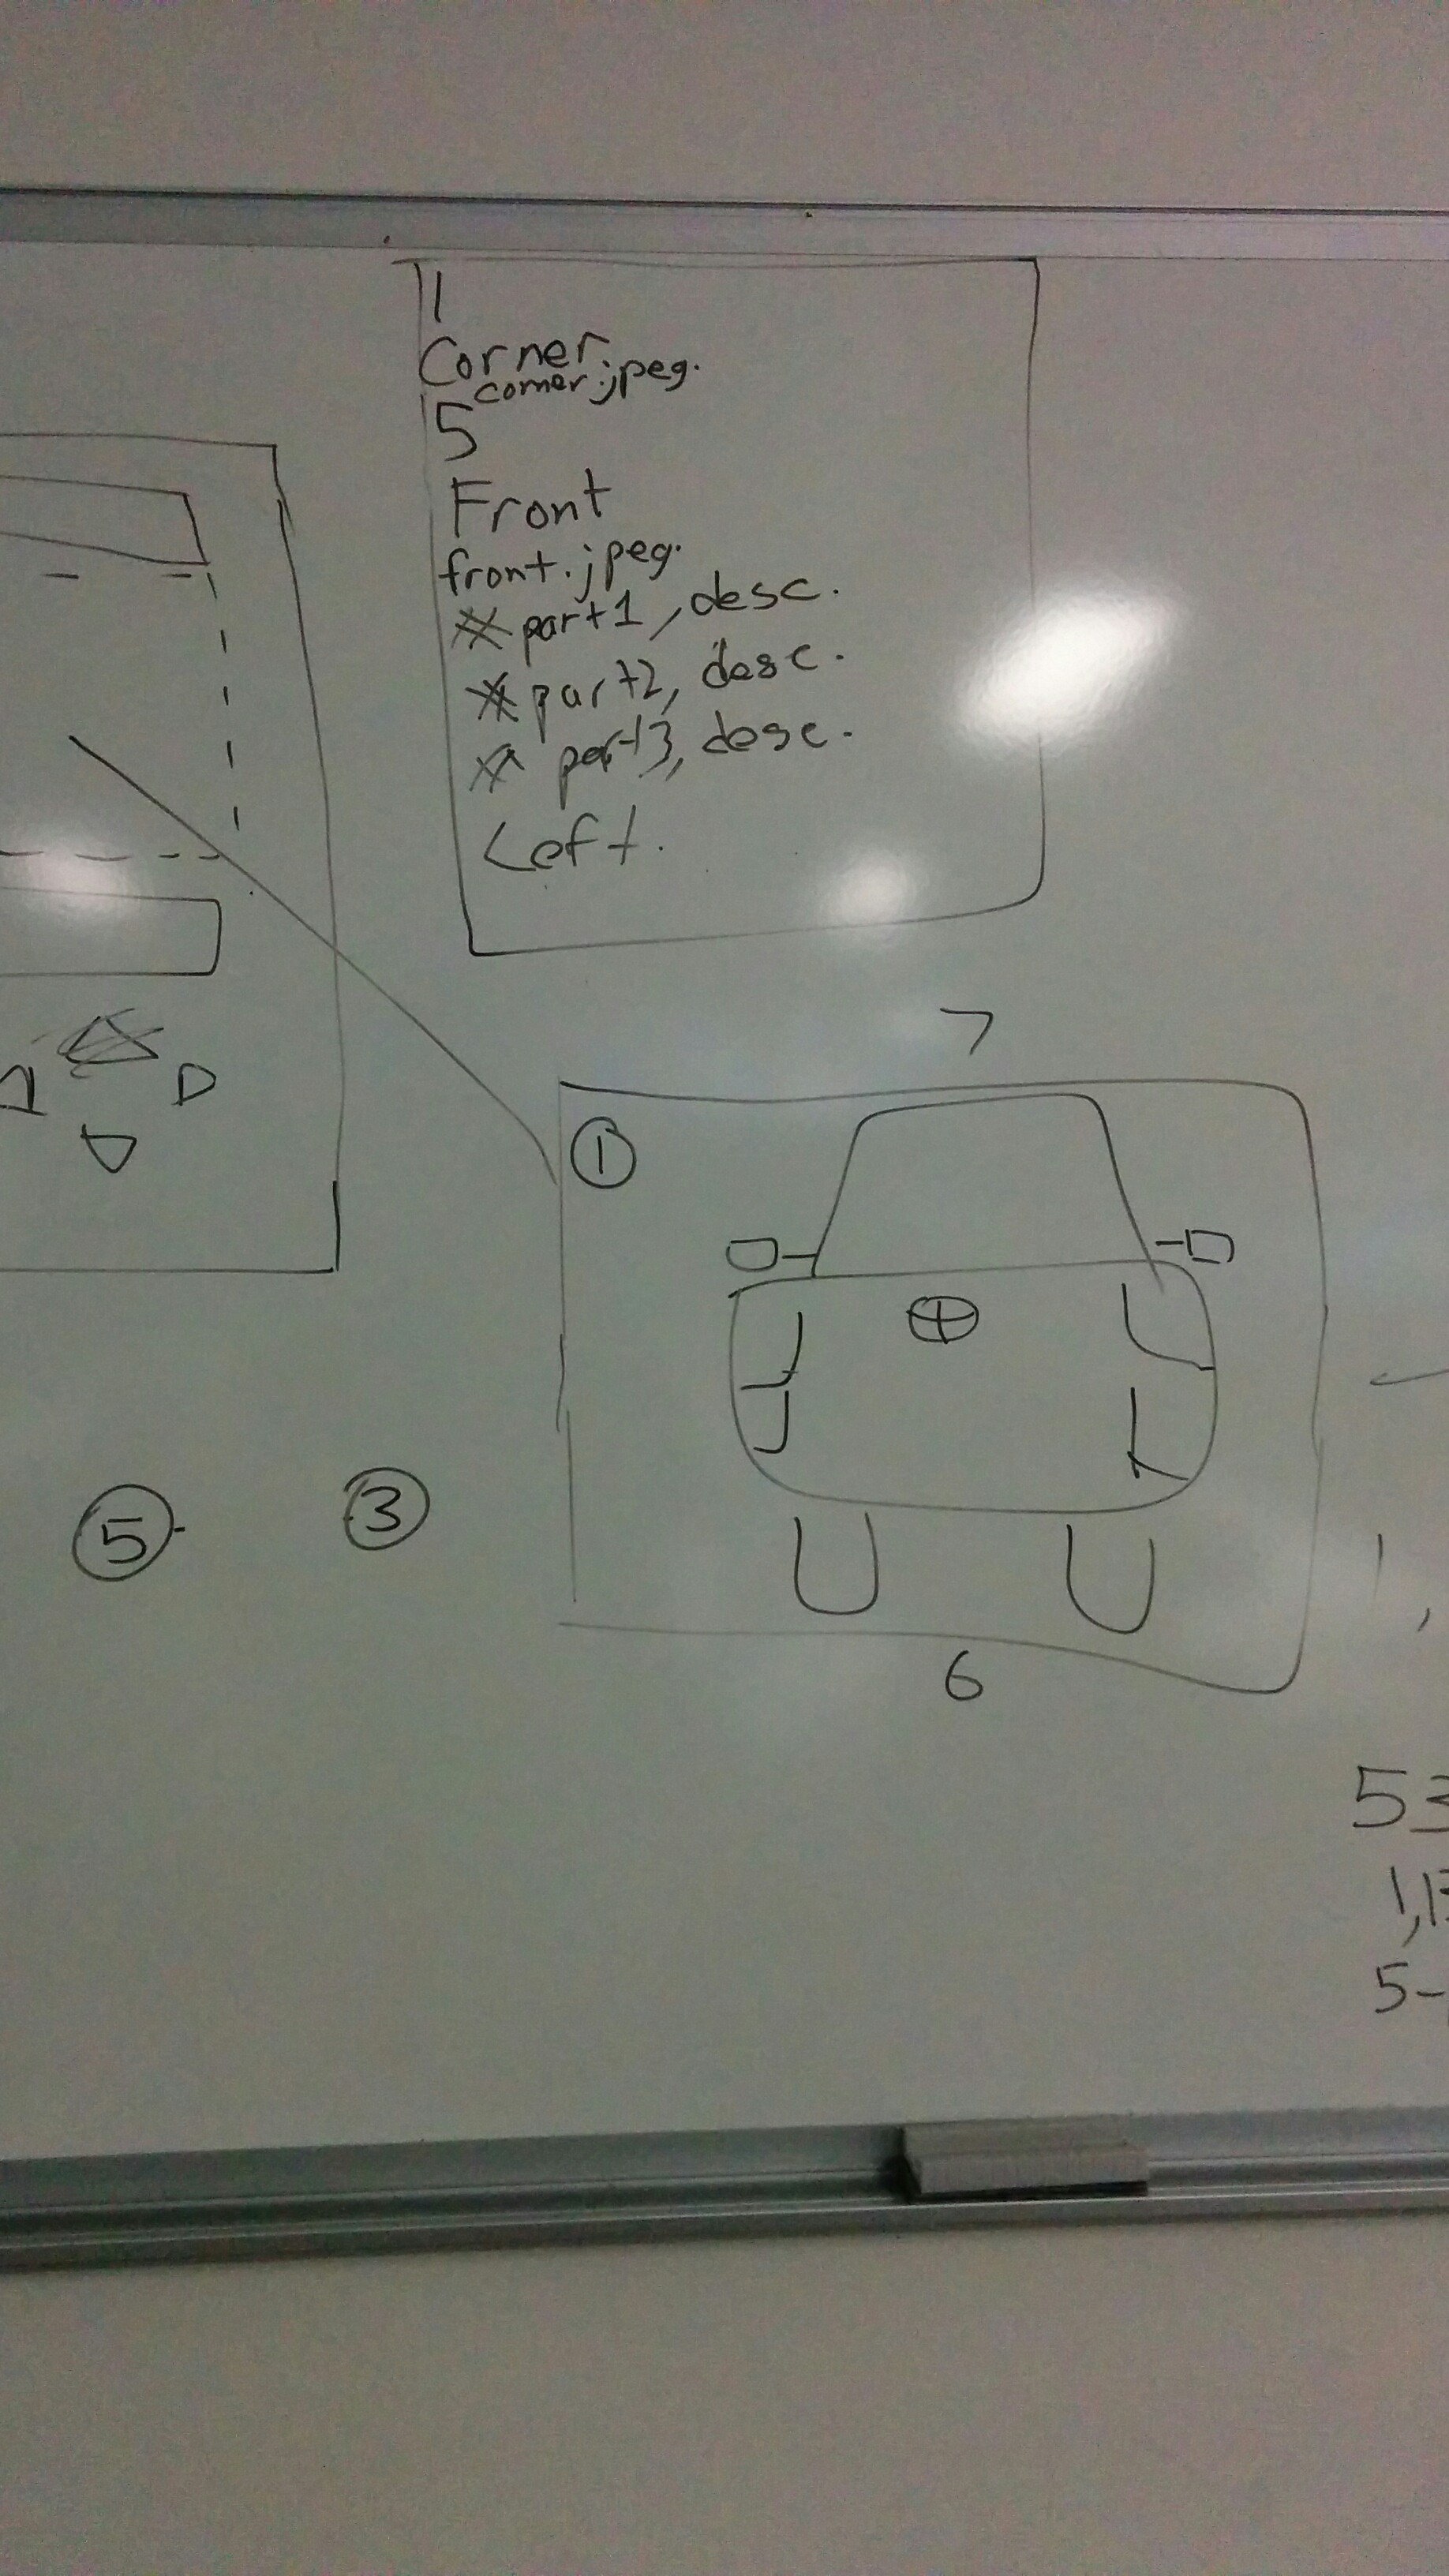 1
Corner
corner.jpeg.
5
Front
front.jpeg.
* part1, desc.
* part2, desc.
* part3, desc.
Left.
7
1
5
3
6
5
1,
5-